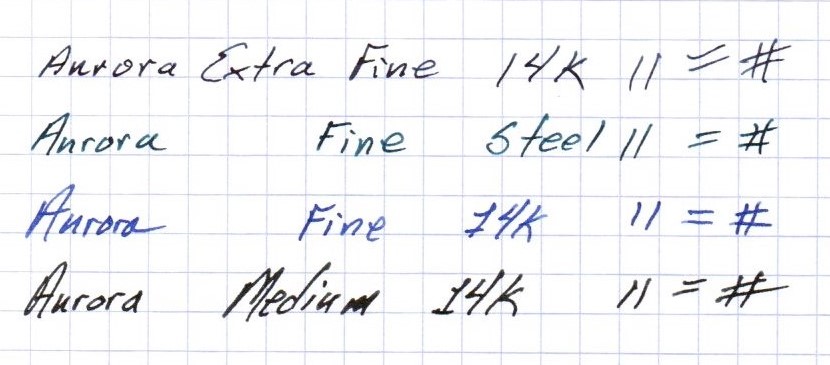 Aurora Extra Fine 14K 11 = #
Aurora Fine Steel 11 = #
Aurora Fine 14K 11 = #
Aurora Medium 14K 11 = #